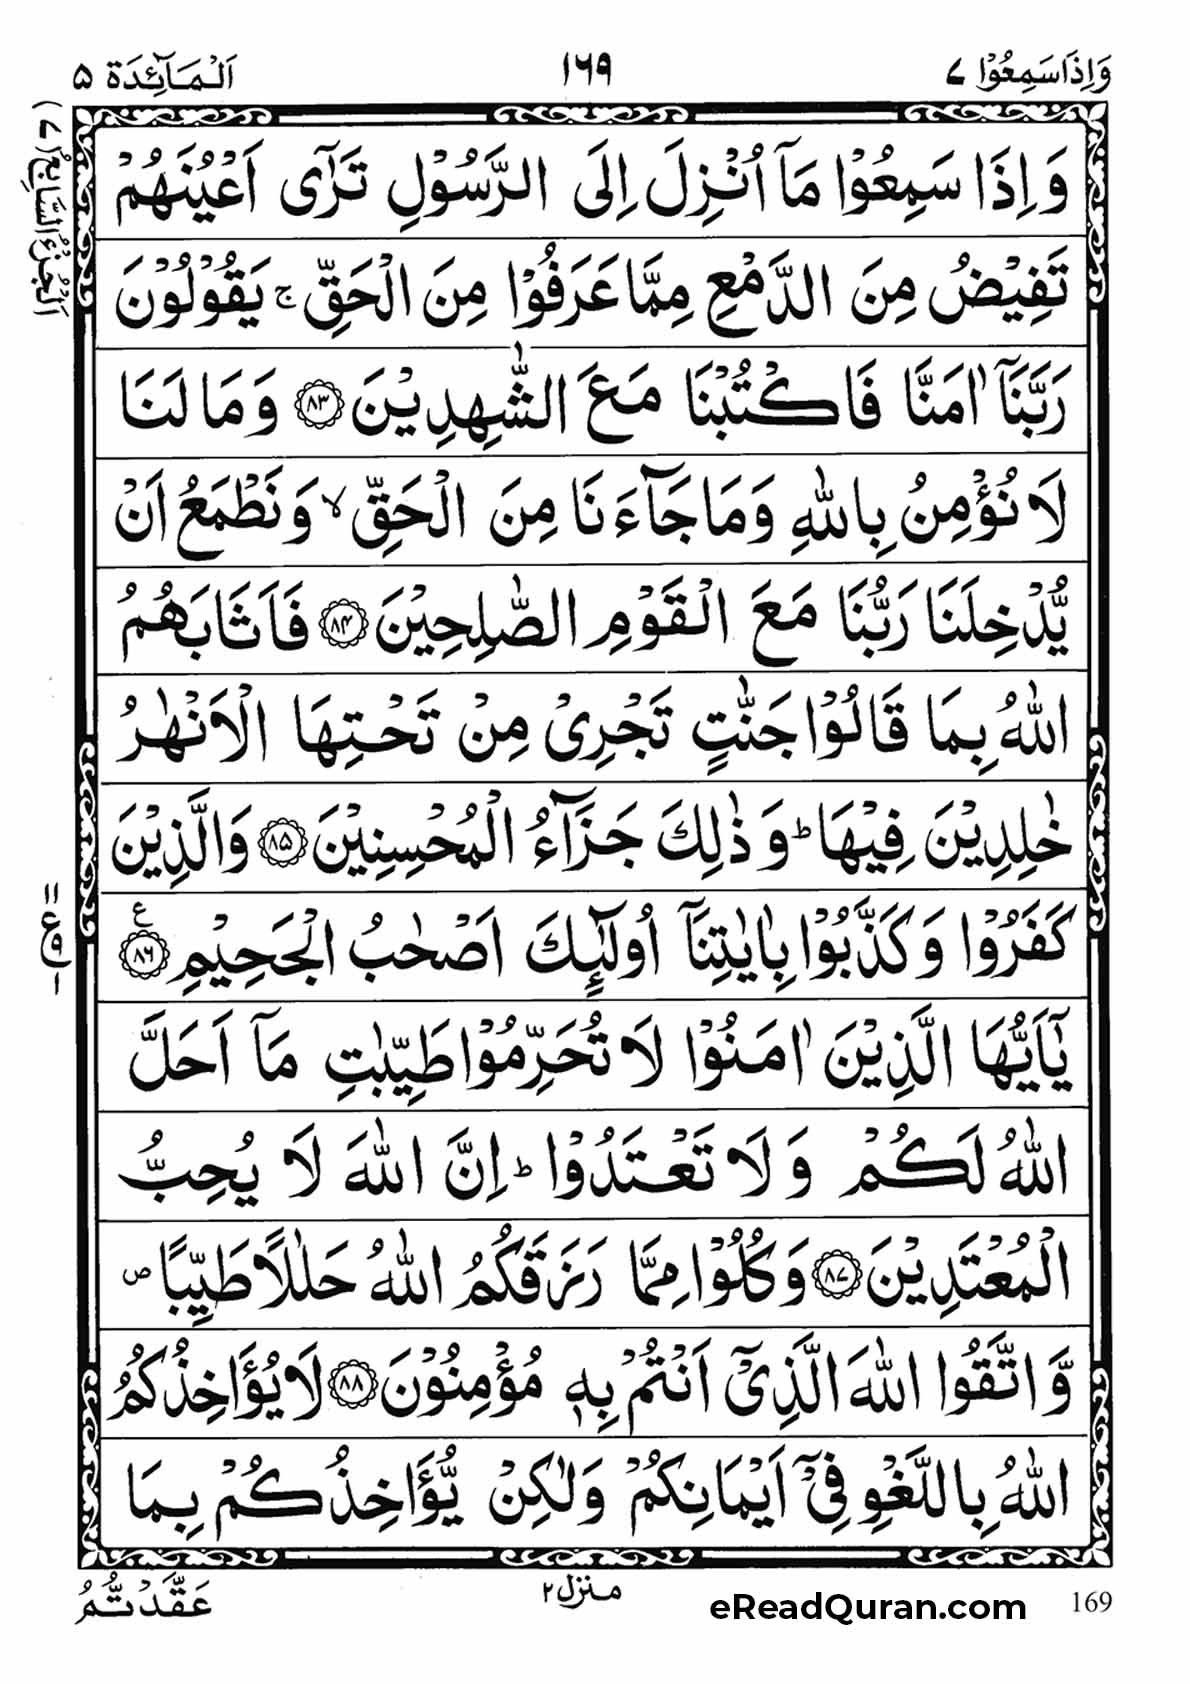 وَاِذَا سَمِعُوْا ٧
١٦٩
اَلْمَآئِدَة ٥
اَلْجُزْءُ السَّابِعُ (٧)
وَاِذَا سَمِعُوْا مَاۤ اُنْزِلَ اِلَى الرَّسُوْلِ تَرٰۤى اَعْيُنَهُمْ
تَفِيْضُ مِنَ الدَّمْعِ مِمَّا عَرَفُوْا مِنَ الْحَقِّ ۚ يَقُوْلُوْنَ
رَبَّنَاۤ اٰمَنَّا فَاكْتُبْنَا مَعَ الشّٰهِدِيْنَ ﴿٨٣﴾ وَمَا لَنَا
لَا نُؤْمِنُ بِاللّٰهِ وَمَا جَآءَنَا مِنَ الْحَقِّ ۙ وَنَطْمَعُ اَنْ
يُّدْخِلَنَا رَبُّنَا مَعَ الْقَوْمِ الصّٰلِحِيْنَ ﴿٨٤﴾ فَاَثَابَهُمُ
اللّٰهُ بِمَا قَالُوْا جَنّٰتٍ تَجْرِىْ مِنْ تَحْتِهَا الْاَنْهٰرُ
خٰلِدِيْنَ فِيْهَا ؕ وَذٰلِكَ جَزَآءُ الْمُحْسِنِيْنَ ﴿٨٥﴾ وَالَّذِيْنَ
كَفَرُوْا وَكَذَّبُوْا بِاٰيٰتِنَاۤ اُولٰٓئِكَ اَصْحٰبُ الْجَحِيْمِ ﴿٨٦﴾ ع
يٰۤاَيُّهَا الَّذِيْنَ اٰمَنُوْا لَا تُحَرِّمُوْا طَيِّبٰتِ مَاۤ اَحَلَّ
اللّٰهُ لَكُمْ وَلَا تَعْتَدُوْا ؕ اِنَّ اللّٰهَ لَا يُحِبُّ
الْمُعْتَدِيْنَ ﴿٨٧﴾ وَكُلُوْا مِمَّا رَزَقَكُمُ اللّٰهُ حَلٰلًا طَيِّبًا ص
وَّاتَّقُوا اللّٰهَ الَّذِىْۤ اَنْتُمْ بِهٖ مُؤْمِنُوْنَ ﴿٨٨﴾ لَا يُؤَاخِذُكُمُ
اللّٰهُ بِاللَّغْوِ فِىْۤ اَيْمَانِكُمْ وَلٰكِنْ يُّؤَاخِذُكُمْ بِمَا
عَقَّدْتُّمُ
منزل ٢
eReadQuran.com
169